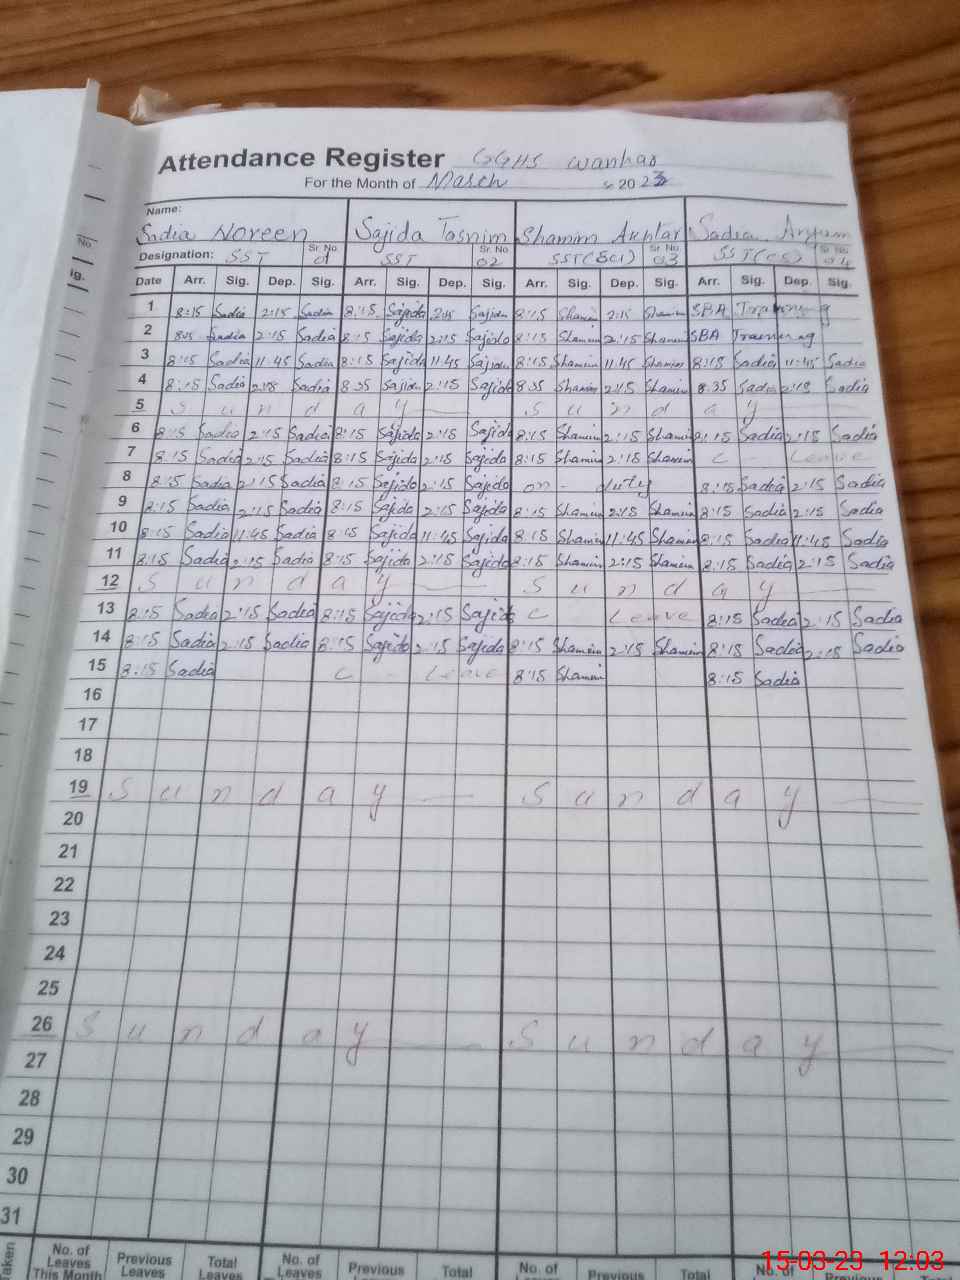 Attendance Register GGHS wanhar
For the Month of March 2023
No.
Name:
Sadia Noreen Sajida Tasnim Shamim Akhtar Sadia Anjum
Designation: SST Sr. No. 01 SST Sr. No. 02 SST(Sci) Sr. No. 03 SST(CS) Sr. No. 04
ig.
Date Arr. Sig. Dep. Sig. Arr. Sig. Dep. Sig. Arr. Sig. Dep. Sig. Arr. Sig. Dep. Sig.
1 8:15 Sadia 2:15 Sadia 8:15 Sajida 2:15 Sajida 8:15 Shamim 2:15 Shamim SBA Training
2 8:15 Sadia 2:15 Sadia 8:15 Sajida 2:15 Sajida 8:15 Shamim 2:15 Shamim SBA Training
3 8:15 Sadia 11:45 Sadia 8:15 Sajida 11:45 Sajida 8:15 Shamim 11:45 Shamim 8:15 Sadia 11:45 Sadia
4 8:15 Sadia 2:15 Sadia 8:35 Sajida 2:15 Sajida 8:35 Shamim 2:15 Shamim 8:35 Sadia 2:15 Sadia
5 S u n d a y S u n d a y
6 8:15 Sadia 2:15 Sadia 8:15 Sajida 2:15 Sajida 8:15 Shamim 2:15 Shamim 8:15 Sadia 2:15 Sadia
7 8:15 Sadia 2:15 Sadia 8:15 Sajida 2:15 Sajida 8:15 Shamim 2:15 Shamim C - Leave
8 8:15 Sadia 2:15 Sadia 8:15 Sajida 2:15 Sajida on - duty 8:15 Sadia 2:15 Sadia
9 8:15 Sadia 2:15 Sadia 8:15 Sajida 2:15 Sajida 8:15 Shamim 2:15 Shamim 8:15 Sadia 2:15 Sadia
10 8:15 Sadia 11:45 Sadia 8:15 Sajida 11:45 Sajida 8:15 Shamim 11:45 Shamim 8:15 Sadia 11:45 Sadia
11 8:15 Sadia 2:15 Sadia 8:15 Sajida 2:15 Sajida 8:15 Shamim 2:15 Shamim 8:15 Sadia 2:15 Sadia
12 S u n d a y S u n d a y
13 8:15 Sadia 2:15 Sadia 8:15 Sajida 2:15 Sajida C Leave 8:15 Sadia 2:15 Sadia
14 8:15 Sadia 2:15 Sadia 8:15 Sajida 2:15 Sajida 8:15 Shamim 2:15 Shamim 8:15 Sadia 2:15 Sadia
15 8:15 Sadia C - Leave 8:15 Shamim 8:15 Sadia
16
17
18
19 S u n d a y S u n d a y
20
21
22
23
24
25
26 S u n d a y S u n d a y
27
28
29
30
31
Taken No. of Leaves This Month Previous Leaves Total Leaves No. of Leaves Previous Total No. of Previous Total No. of Previous
15-03-23 12:03